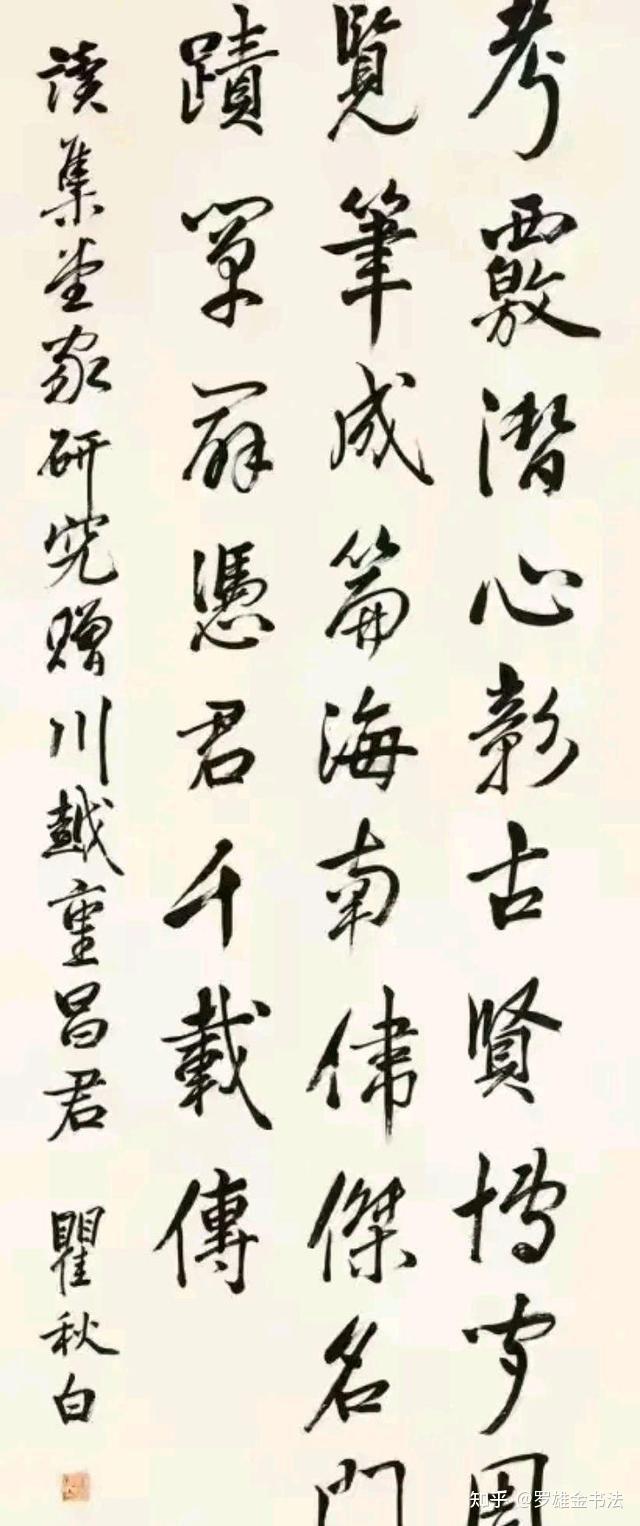 考覈潛心彰古賢博聞周
覽筆成篇海南偉傑名門
蹟單辭憑君千載傳
讀集堂家研究贈川越重昌君 瞿秋白
知乎 @罗雄金书法